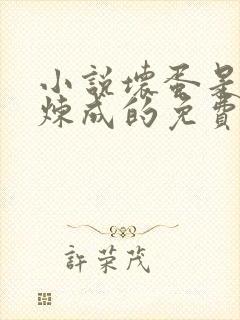 小說壞蛋是
煉成的免費
許荣茂